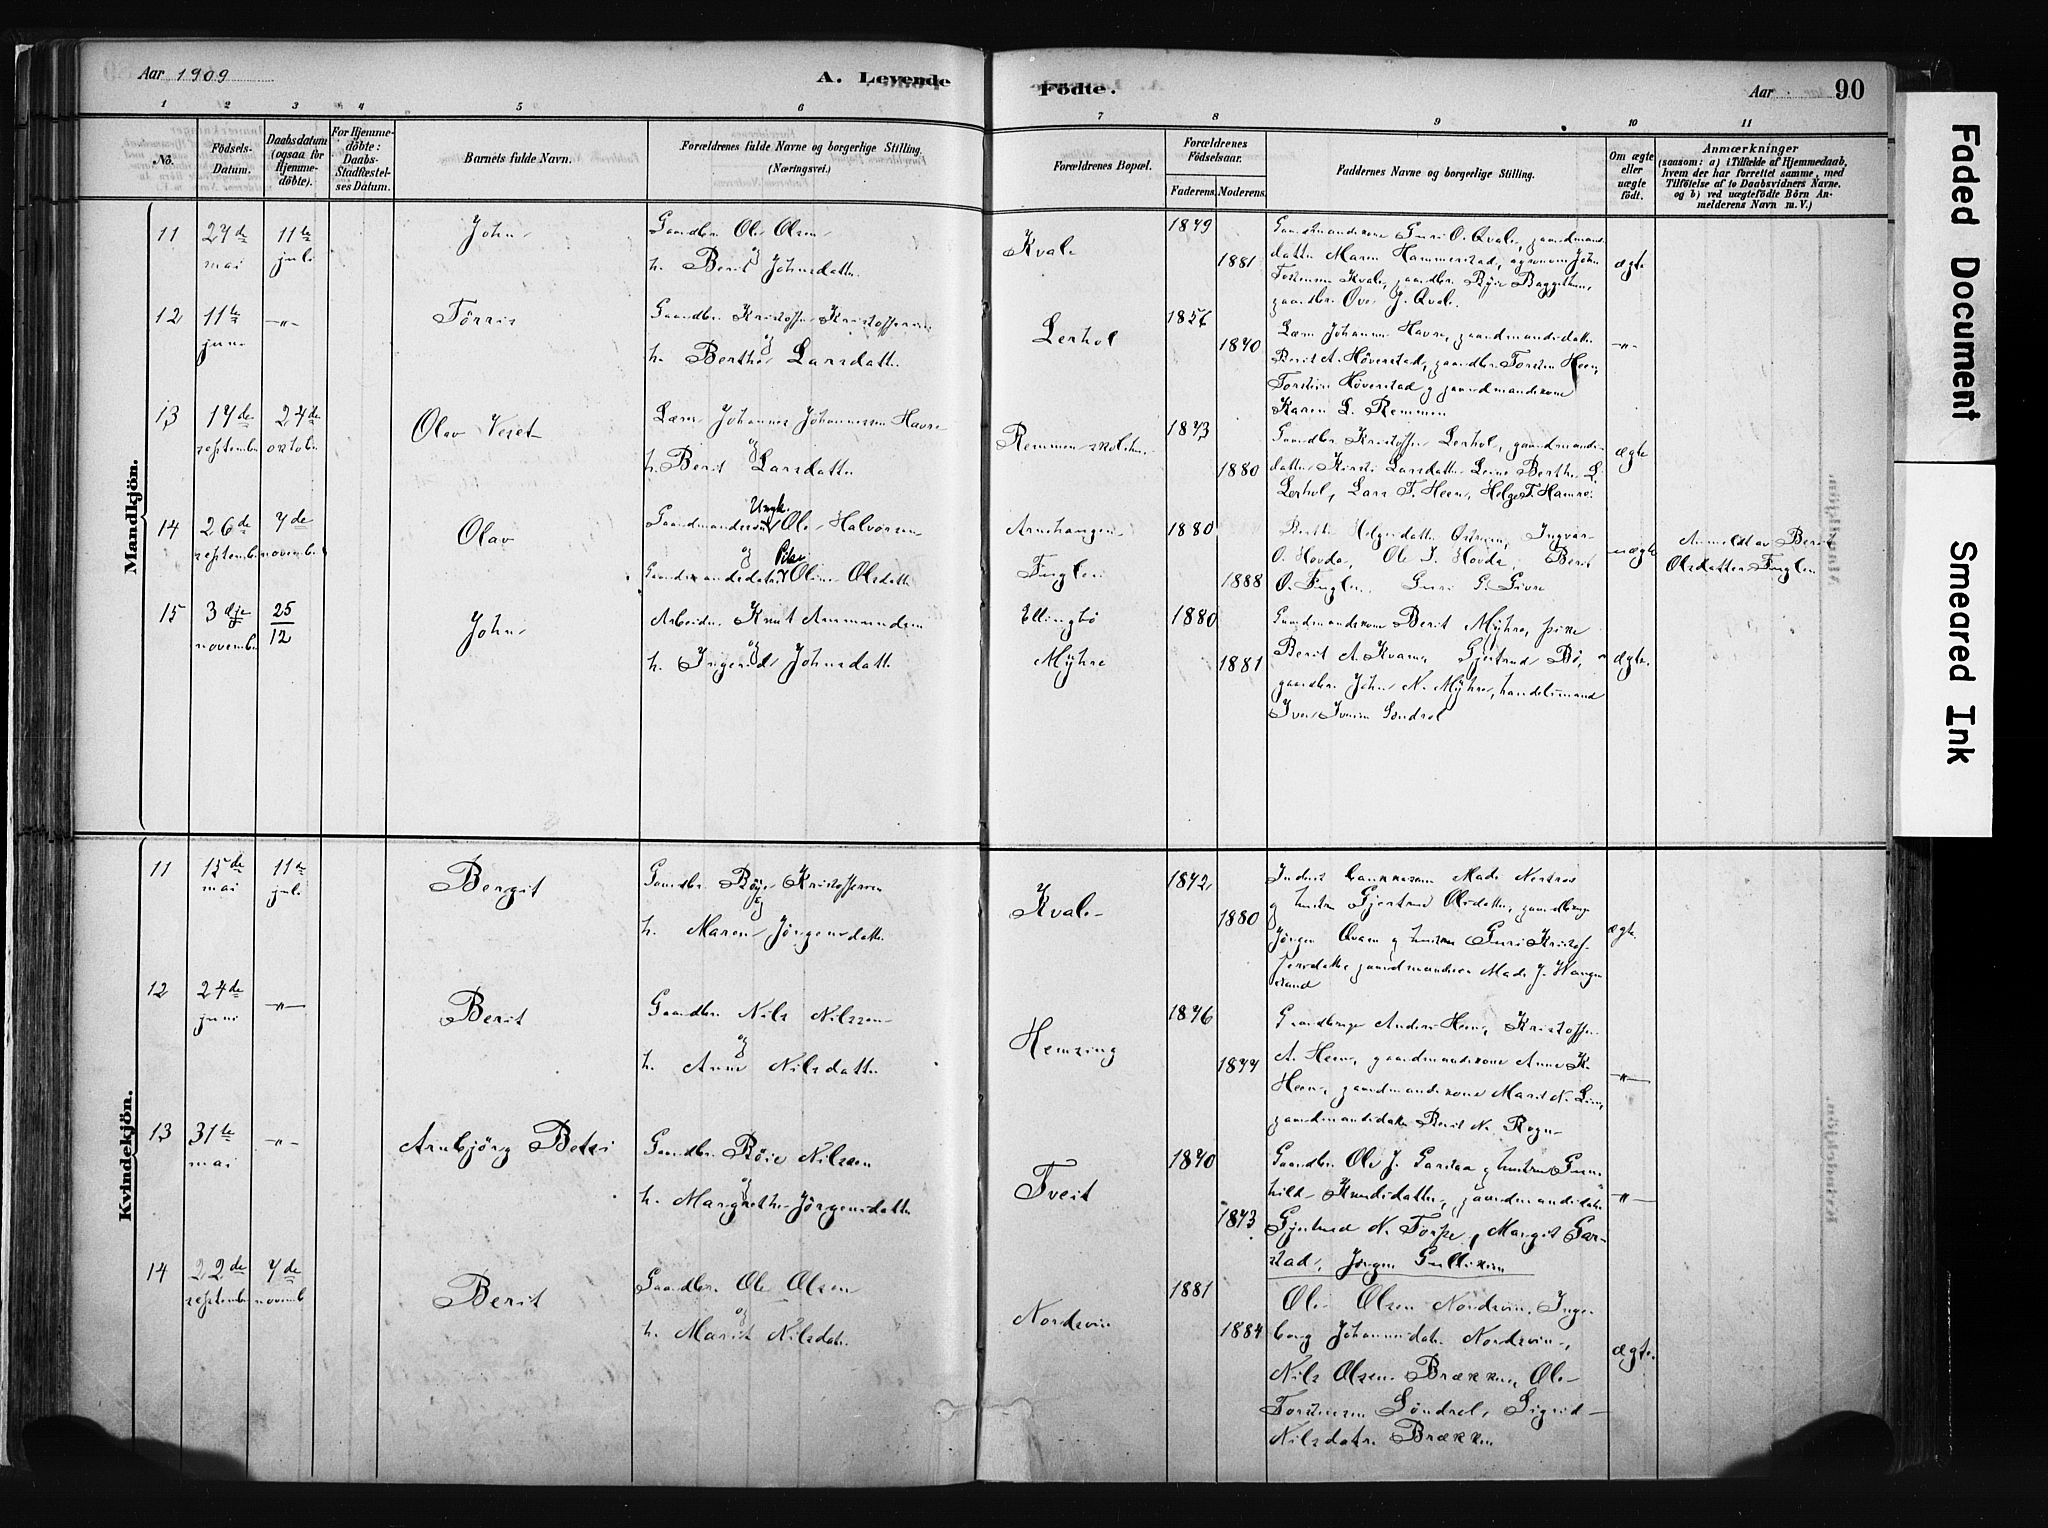 Aar 1909
A. Levende
Födte.
Aar
90
1 2 3 4 5 6 7 8 9 10 11
No.
Födsels-
Datum.
Daabsdatum
(ogsaa for
Hjemme-
döbte).
For Hjemme-
döbte:
Daabs-
Stadfæstel-
ses Datum.
Barnets fulde Navn.
Forældrenes fulde Navne og borgerlige Stilling.
(Næringsvei.)
Forældrenes Bopæl.
Forældrenes
Födselsaar.
Faderens.
Moderens.
Faddernes Navne og borgerlige Stilling.
Om ægte
eller
uægte
födt.
Anmærkninger
(saasom: a) i Tilfælde af Hjemmedaab,
hvem der har forrettet samme, med
Tilföielse af to Daabsvidners Navne,
og b) ved uægtefödte Börn An-
melderens Navn m. V.)
Mandkjön.
11
27de
mai
11te
juli
John
Gaardbr. Ole Olsen
og
h. Berit Johnsdatter
Kvale
1849
1881
Gaardmandskone Guri O. Qvale, gaardmands-
datter Maren Hammerstad, agronom John
Torstensen Kvale, gaardbr. Röie Baggethun,
gaardbr. Ove J. Qvale.
ægte
12
11te
juni
—"—
Törris
Gaardbr. Kristoffer Kristoffersen
og
h. Berthe Larsdatter
Lerhol
1856
1870
Lærer Johannes Havro, gaardmandsdatter
Berit A. Höverstad, gaardbr. Torsten Heen,
Torstein Höverstad og gaardmandskone
Karen L. Remmen
—"—
13
17de
september
24de
oktober
Olav Veset
Lærer Johannes Johannessen Havro
og
h. Berit Larsdatter
Remmen skolehus
1873
1880
Gaardbr. Kristoffer Lerhol, gaardmands-
datter Kirsti Larsdatter Leine Berthe L.
Lerhol, Lars T. Heen, Helge T. Hamre.
ægte
14
26de
september
7de
november
Olav
Ungk.
Gaardmandssön Ole Halvorsen
og Pike
Gaardmandsdatter Oline Olsdatter
Arnehaugen
Fuglei
1880
1888
Berthe Helgesdatter Östreim, Ingvar
O. Hovda, Ole J. Hovda, Berit
O. Fuglei Guri G. Givre
uægte
Anmeldt av Berit
Olsdatter Fuglei
15
3dje
november
25
12
John
Arbeider Knut Ammundsen
og
h. Ingerid Johnsdatter
Ellingbö
Myhre
1880
1881
Gaardmandskone Berit Myhre, pike
Berit A. Kvam, Gjertrud Bö,
gaardbr. John N. Myhre, handelsmand
Iver Iversen Söndrol
ægte.
Kvindekjön.
11
15de
mai
11te
juli
Bergit
Gaardbr. Röie Kristoffersen
og
h. Maren Jörgensdatter
Kvale
1872
1880
Mads Nestros
og hustru Gjertrud Olsdatter, gaardbruger
Jörgen Qvam og hustru Guri Kristof-
fersdatter gaardmandssön Mads J. Wangen
strand
ægte.
12
24de
juni
—"—
Berit
Gaardbr. Nils Nilssen
og
h. Anne Nilsdatter
Hemsing
1876
1877
Gaardbruger Anders Heen, Kristoffer
A. Heen, gaardmandskone Anne K.
Heen, gaardmandskone Marit N. Lien,
gaardmandsdatter Berit N. Rogn
—"—
13
31te
mai
—"—
Arnbjörg Betsi
Gaardbr. Röie Nilssen
og
h. Margrethe Jörgensdatter
Tveit
1870
1873
Gaardbr. Ole J. Garstaa og hustru Gun-
hild Knudsdatter, gaardmandsdatter
Gjertrud N. Torpe, Margit Gar-
stad, Jörgen Gulliksen
—"—
14
22de
september
7de
novemb
Berit
Gaardbr. Ole Olsen
og
h. Marit Nilsdatr
Nordsvin
1881
1884
Ole Olsen Nordsvin, Inge-
borg Johannesdatr Nordsvin,
Nils Olsen Brækken, Ole
Torsteinsen Söndrol, Sigrid
Nilsdatr. Brækken
ægte.
Faded Document
Smeared Ink